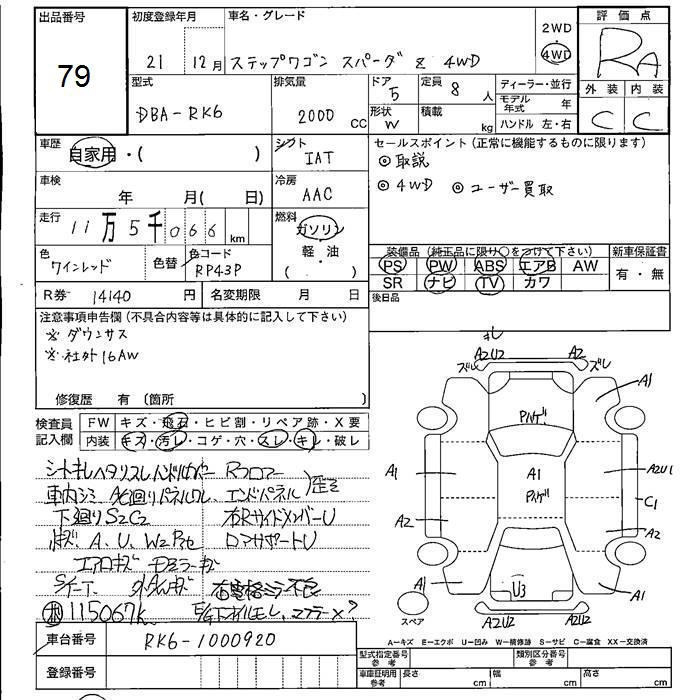 出品番号 79
初度登録年月 21 12月
車名・グレード ステップワゴン スパーダ Z 4WD
2WD
4WD
評価点 RA
外装 内装
C C
型式 DBA-RK6
排気量 2000 cc
ドア 5
定員 8 人
形状 W
積載 kg
ディーラー・並行
モデル年式 年
ハンドル 左・右
車歴 自家用・( )
シフト IAT
セールスポイント (正常に機能するものに限ります)
◎取説
◎4WD ◎ユーザー買取
車検 年 月( 日)
冷房 AAC
走行 11万5千066 km
燃料 ガソリン
軽・油
( )
色 ワインレッド
色替
色コード RP43P
装備品 (純正品に限り○をつけて下さい)
PS PW ABS エアB AW
SR ナビ TV カワ
新車保証書
有・無
R券 14140 円
名変期限 月 日
後日品
注意事項申告欄 (不具合内容等は具体的に記入して下さい)
※ダウンサス
※社外16AW
修復歴 有 (箇所 )
検査員記入欄
FW キズ・飛石・ヒビ割・リペア跡・X要
内装 キズ・汚レ・コゲ・穴・スレ・キレ・破レ
シートキレヘタリスレハンドルカバー Rフロアー
エンドパネル
下廻りS2C2
A、U、W2
エアロキズ
115067k
A2U2 A2
ズレ ズレ
A1
Pハゲ
A1 A1 A2U1
Pハゲ
C1
A2 A2
A1 U3 A1
A2U2 A2U2
スペア
A-キズ E-エクボ U-凹み W-補修跡 S-サビ C-腐食 XX-交換済
車台番号 RK6-1000920
登録番号
型式指定番号 参考
類別区分番号 参考
車庫証明用 参考
長さ cm
幅 cm
高さ cm